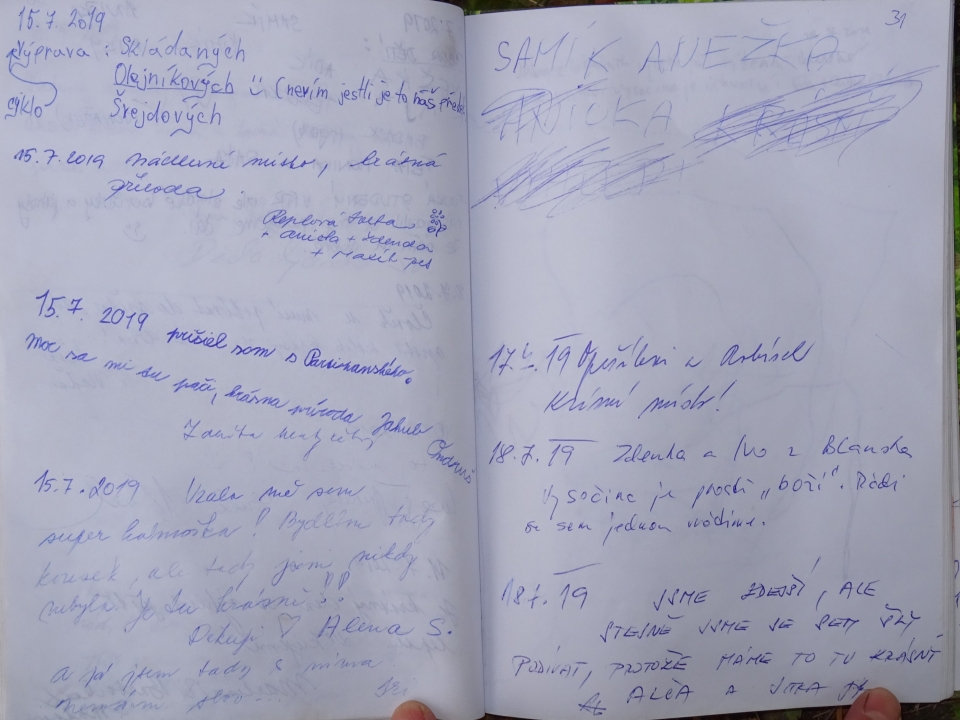 15.7. 2019
Výprava : Skládaných
Olejníkových (nevím jestli je to náš
cyklo Šrejdových
15.7.2019 nádherné místo, krásná
příroda.
+ Anička + Zdenda
+ Maxík-pes
15.7. 2019 prišiel som s
moc sa mi tu páči, krásna príroda Jakub
15.7.2019 Vzala mě sem
super kámoška! Bydlím tady
kousek, ale tady jsem nikdy
nebyla je tu krásně!!
Děkuji ♡ Alena S.
a já jsem tady s nima
31
SAMÍK ANEŽKA
ANIČKA
17. .19 a
Krásné místo!
18.7.19 Zdenka a Ivo z Blanska
Vysočina je prostě „boží". Rádi
se sem jednou vrátíme.
18.7.19 JSME ZDEJŠÍ, ALE
STEJNĚ JSME SE SEM ŠLY
PODÍVAT, PROTOŽE MÁME TO TU KRÁSNÝ
ALČA A JITKA